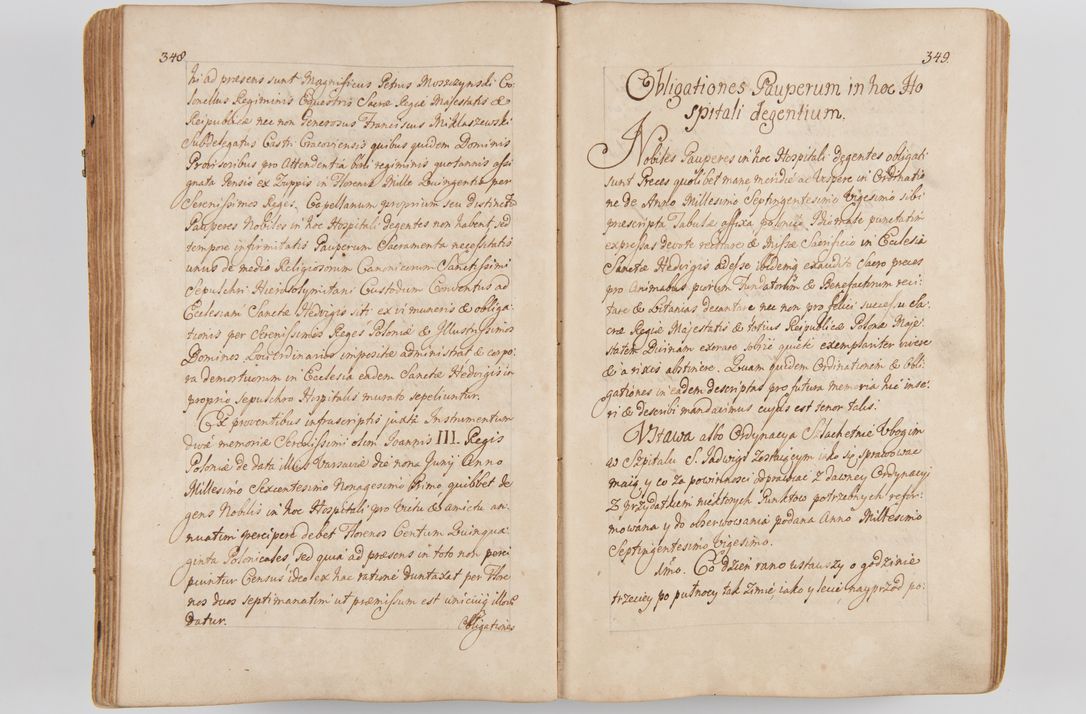 348
hi ad præsens sunt Magnificus Petrus Moszczynski Co-
lonellus Regiminis Equestris Sacræ Regiæ Majestatis &
Reipublicæ nec non Generosus Franciscus Miklaszewski
Subdelegatus Castri Cracoviensis quibus quidem Dominis
Provisoribus pro Attendentia boni regiminis quotannis assi
gnata Pensio ex Zuppis in Florenis Mille Quingentis per
Serenissimos Reges. Capellanum proprium seu distinctū
Pauperes Nobiles in hoc Hospitali degentes non habent sed
tempore infirmitatis Pauperum Sacramenta necessitatis
unus de medio Religiosorum Canonicorum Sanctissimi
Sepulchri Hierosolymitani Custodum Conventus ad
Ecclesiam Sanctæ Hedvigis siti ex vi muneris & obliga-
tionis per Serenissimos Reges Poloniæ & Illustrissimos
Dominos Loci Ordinarios impositæ administrat & corpo-
ra demortuorum in Ecclesia eadem Sanctæ Hedvigis in
proprio sepulchro Hospitalis murato sepeliuntur.
Ex proventibus infrascriptis juxta Instrumentum
divæ memoriæ Serenissimi olim Joannis III. Regis
Poloniæ de data illius Varsaviæ die nona Junij Anno
Millesimo Sexcentesimo Nonagesimo Primo quilibet de
gens Nobilis in hoc Hospitali pro Victu & amictu an-
nuatim percipere debet Florenos Centum Quinqua-
ginta Polonicales, sed quia ad præsens in toto non perci
piuntur Census ideo ex hac ratione duntaxat per Flore
nos duos septimanatim ut præmissum est unicuiq illorū
datur.
Obligationes
349
Obligationes Pauperum in hoc Ho
spitali degentium.
Nobiles Pauperes in hoc Hospitali degentes obligati
sunt Preces quolibet mane, meridie ac Vespere in Ordinatio
ne de Anno Millesimo Septingentesimo Vigesimo sibi
præscripta Tabulæ affixa polonico Idiomate punctatim
expressas devote recitare & Missæ Sacrificio in Ecclesia
Sanctæ Hedvigis adesse ibidemq exaudito Sacro preces
pro Animabus piorum Fundatorum & Benefactorum reci
tare & Litanias decantare nec non pro felici successu Sa-
cræ Regiæ Majestatis & totius Reipublicæ Polonæ Maje-
statem Divinam exorare sobrie quiete exemplariter vivere
& a rixis abstinere. Quam quidem Ordinationem & obli-
gationes in eadem descriptas pro futura memoria hic inse-
ri & describi mandavimus cujus est tenor talis.
Ustawa albo Ordynacya Szlachetnie Ubogim
w Szpitalu S. Jadwigi zostaiącym iako się sprawować
maią, y co za powinność odprawiać z dawney Ordynacyi
Z przydatkiem niektorych Punktow potrzebnych refor-
mowana y do obserwowania podana Anno Millesimo
Septingentesimo Vigesimo.
1mo. Co dzień rano wstawszy o godzinie
trzeciey po pułnocy tak Zimie, iako y lecie nayprzod po-